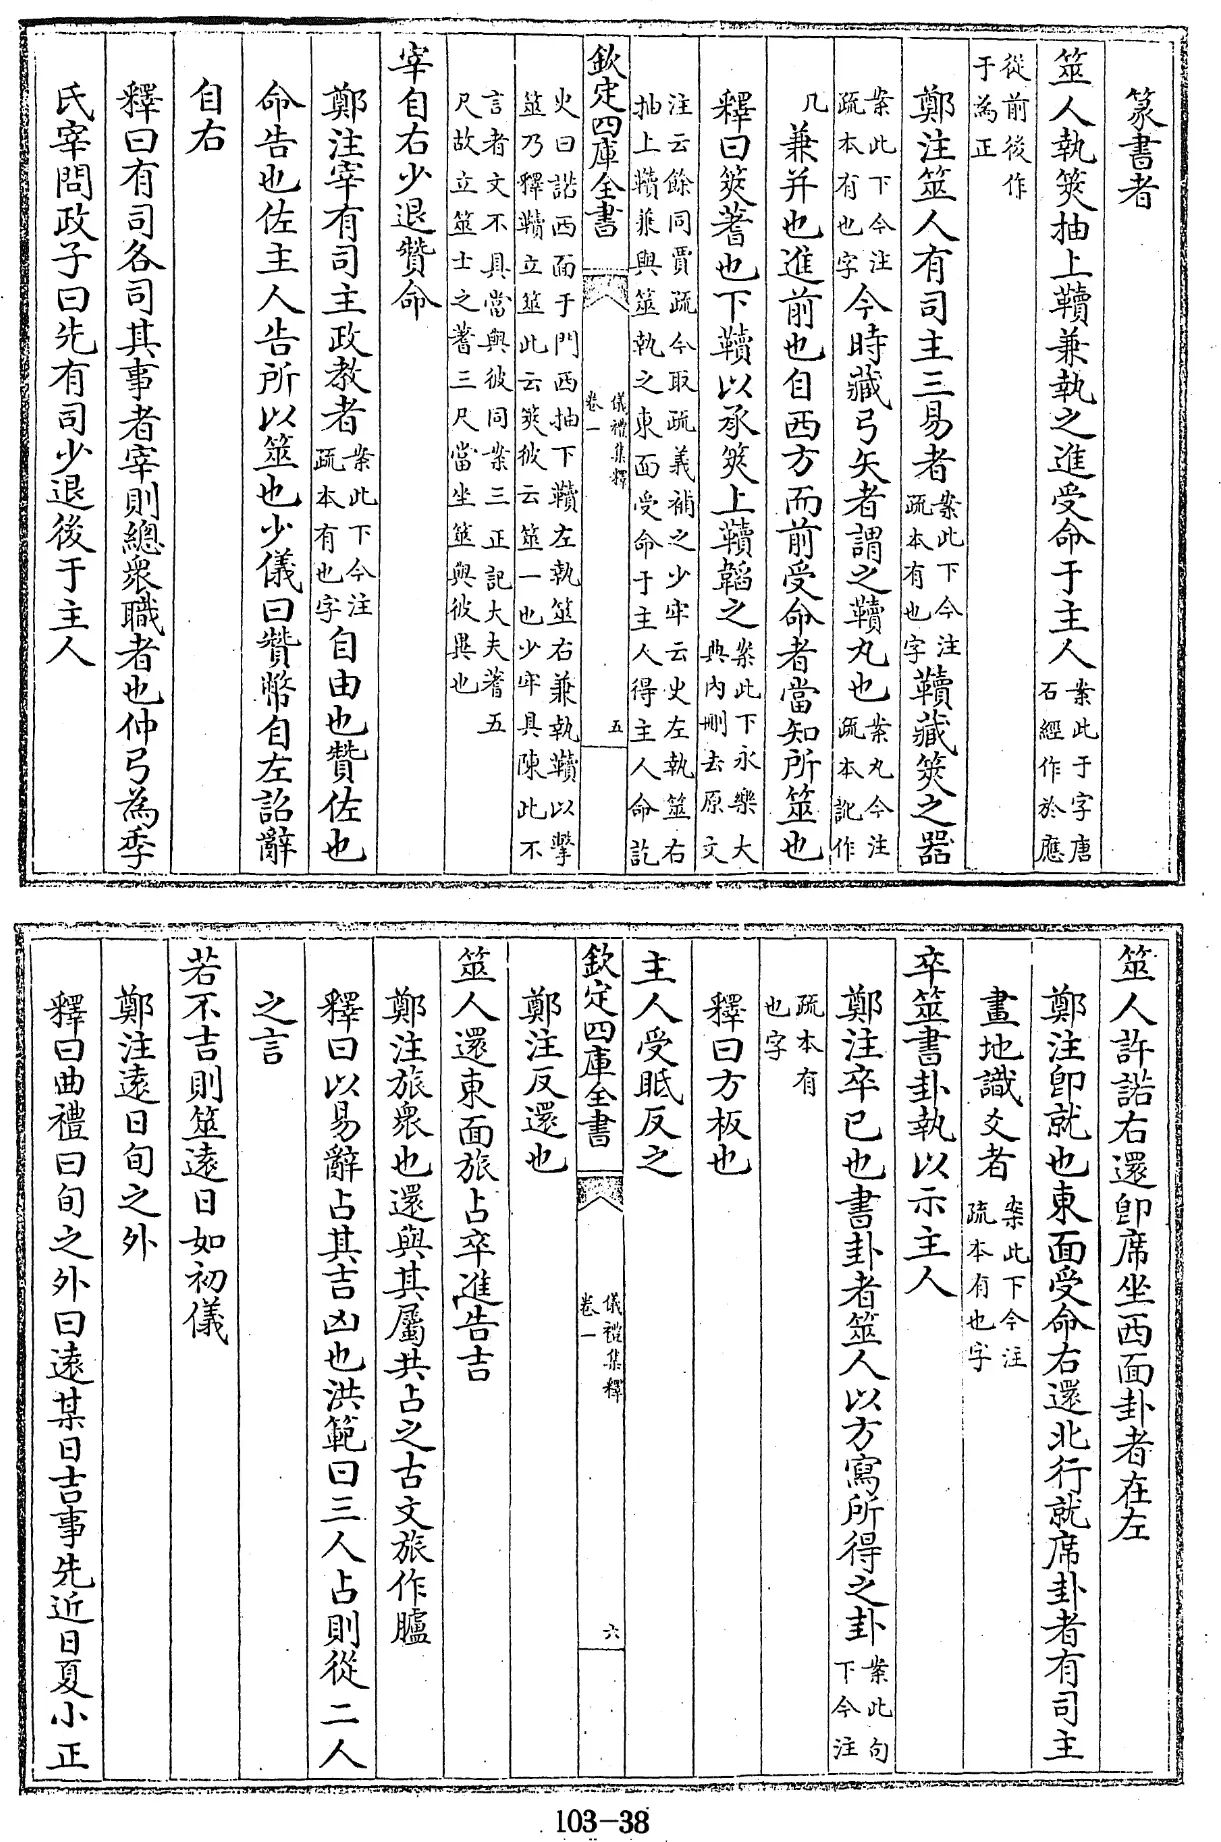 篆書者
筮人執筴抽上韇兼執之進受命于主人案此于字唐石經作於應
從前後作于為正
鄭注筮人有司主三易者案此下今注疏本有也字韇藏筴之器
案此下今注疏本有也字今時藏弓矢者謂之韇丸也案丸今注疏本訛作
几兼并也進前也自西方而前受命者當知所筮也
釋曰筴蓍也下韇以承筴上韇韜之案此下永樂大典内刪去原文
注云餘同賈疏今取疏義補之少牢云史左執筮右抽上韇兼與筮執之東面受命于主人得主人命訖
欽定四庫全書
儀禮集釋
卷一
五
史曰諾西面于門西抽下韇左執筮右兼執韇以擊筮乃釋韇立筮此云筴彼云筮一也少牢具陳此不
言者文不具當與彼同案三正記大夫蓍五尺故立筮士之蓍三尺當坐筮與彼異也
宰自右少退贊命
鄭注宰有司主政教者案此下今注疏本有也字自由也贊佐也
命告也佐主人告所以筮也少儀曰贊幣自左詔辭
自右
釋曰有司各司其事者宰則總衆職者也仲弓為季
氏宰問政子曰先有司少退後于主人
筮人許諾右還卽席坐西面卦者在左
鄭注卽就也東面受命右還北行就席卦者有司主
畫地識爻者案此下今注疏本有也字
卒筮書卦執以示主人
鄭注卒已也書卦者筮人以方寫所得之卦案此句下今注
疏本有也字
釋曰方板也
主人受眡反之
欽定四庫全書
儀禮集釋
卷一
六
鄭注反還也
筮人還東面旅占卒進告吉
鄭注旅衆也還與其屬共占之古文旅作臚
釋曰以易辭占其吉凶也洪範曰三人占則從二人
之言
若不吉則筮遠日如初儀
鄭注遠日旬之外
釋曰曲禮曰旬之外曰遠某日吉事先近日夏小正
103-38